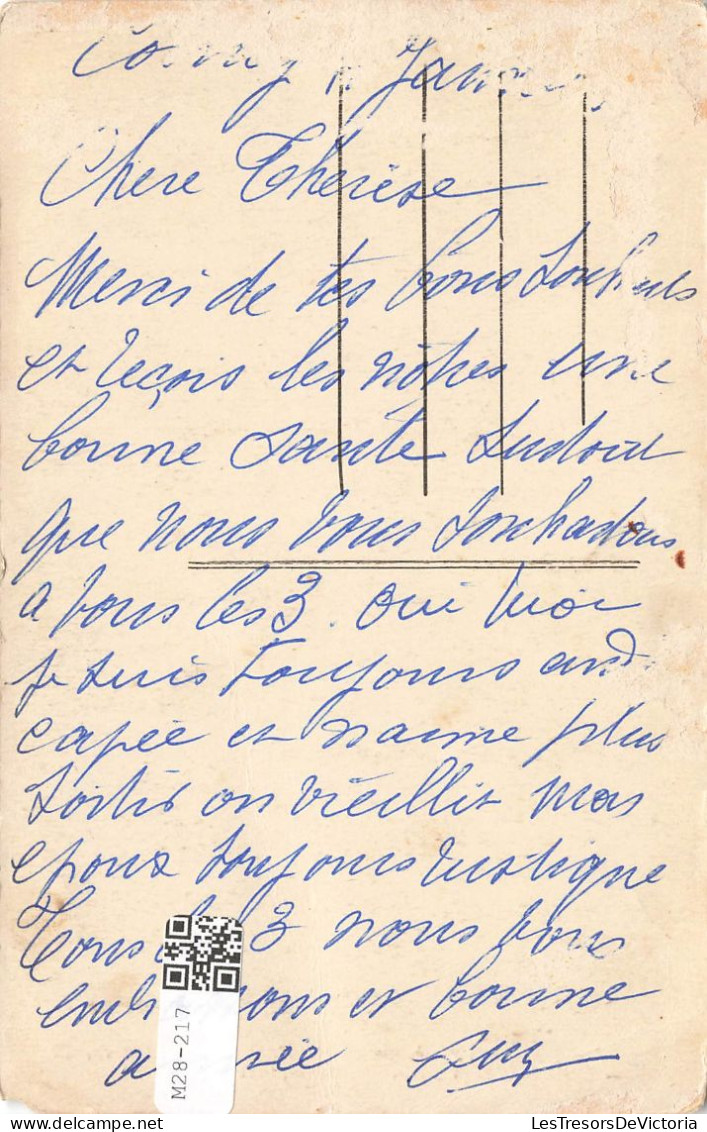 Janvier
Chere Thérèse
Merci de tes bons Souhaits
et reçois les nôtres une
bonne Sante Surtout
que nous vous Souhaitons
a vous les 3. Oui moi
je suis toujours and
capée et n'aime plus
Sortir on vieillit mon
epoux toujours rustique
Tous les 3 nous vous
embrassons et bonne
année
M28-217
LesTresorsDeVictoria